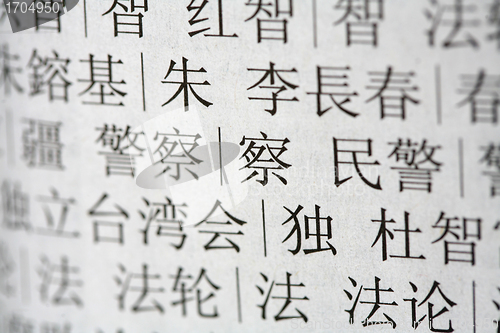 1705950
智 红 智 智 法
朱鎔基|朱 李長春|春
疆 警察|察 民警
独立台湾会|独 杜智
法 法轮|法 法论